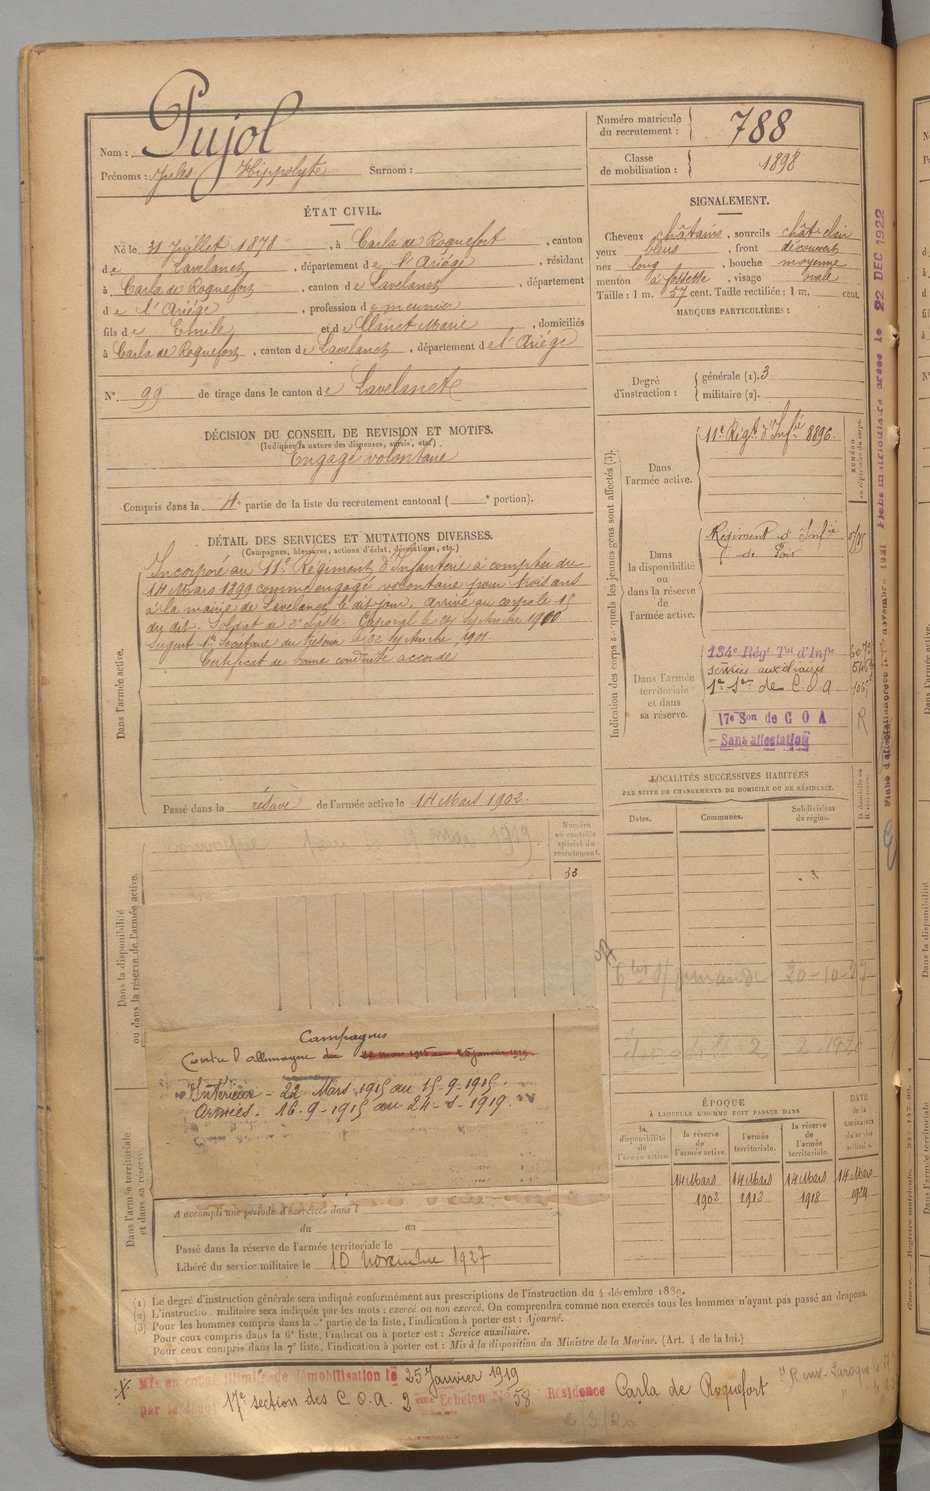 Nom : Pujol
Prénoms : Jules Hippolyte Surnom :
Numéro matricule du recrutement : 788
Classe de mobilisation : 1898
ÉTAT CIVIL.
Né le 31 Juillet 1878, à Carla de Roquefort, canton
de Lavelanet, département de l'Ariège, résidant
à Carla de Roquefort, canton de Lavelanet, département
de l'Ariège, profession de meunier
fils de Emile et de Clanet Marie, domiciliés
à Carla de Roquefort, canton de Lavelanet, département de l'Ariège
N° 99 de tirage dans le canton de Lavelanet
SIGNALEMENT.
Cheveux châtains, sourcils chât-clair
yeux bleus, front découvert
nez long, bouche moyenne
menton à fossette, visage ovale
Taille : 1 m. 57 cent. Taille rectifiée : 1 m. cent.
MARQUES PARTICULIÈRES :
Degré d'instruction : générale (1). 3
militaire (2).
DÉCISION DU CONSEIL DE REVISION ET MOTIFS.
(Indiquer la nature des dispenses, sursis, etc.)
Engagé volontaire
Compris dans la 4e partie de la liste du recrutement cantonal ( e portion).
DÉTAIL DES SERVICES ET MUTATIONS DIVERSES.
(Campagnes, blessures, actions d'éclat, décorations, etc.)
Dans l'armée active.
Incorporé au 11e Régiment d'Infanterie à compter du
14 Mars 1899 comme engagé volontaire pour trois ans
à la mairie de Lavelanet le dit jour. Arrivé au corps le 15
du dit. Soldat de 2e classe. Caporal le 21 Septembre 1900
Sergent 1er Secrétaire du trésorier le 22 Septembre 1901
Certificat de bonne conduite accordé
Passé dans la réserve de l'armée active le 14 Mars 1902.
Indication des corps auxquels les jeunes gens sont affectés (3).
Dans l'armée active.
11e Régt. d'Infie 8896.
Dans la disponibilité ou dans la réserve de l'armée active.
Régiment d'Infie
de Foix
Dans l'armée territoriale et dans sa réserve.
134e Régt Tal d'Infie
services auxiliaires
1e Son de C O A
17e Son de C O A
Sans affectation
R
Fiche matriculaire créée le 22 DEC 1922
LOCALITÉS SUCCESSIVES HABITÉES
PAR SUITE DE CHANGEMENTS DE DOMICILE OU DE RÉSIDENCE.
Dates.
Communes.
Subdivisions de région.
D. domicile ou R. résidence.
20-10-27
Dans la disponibilité ou dans la réserve de l'armée active.
Numéro au contrôle spécial du recrutement.
33
Campagnes
Contre l'allemagne du 22 mars 1915 au 25 janvier 1919
Intérieur - 22 Mars 1915 au 15-9-1915.
Armées. 16-9-1915 au 24-1-1919.
Dans l'armée territoriale et dans sa réserve.
A accompli une période d'exercices dans l
du au
Passé dans la réserve de l'armée territoriale le
Libéré du service militaire le 10 novembre 1927
ÉPOQUE
À LAQUELLE L'HOMME DOIT PASSER DANS
la disponibilité de l'armée active.
la réserve de l'armée active.
l'armée territoriale.
la réserve de l'armée territoriale.
DATE de la LIBÉRATION du service militaire.
14 Mars 1902
14 Mars 1912
14 Mars 1918
14 Mars 1924
(1) Le degré d'instruction générale sera indiqué conformément aux prescriptions de l'instruction du 4 décembre 1889.
(2) L'instruction militaire sera indiquée par les mots : exercé ou non exercé. On comprendra comme non exercés tous les hommes n'ayant pas passé au drapeau.
(3) Pour les hommes compris dans la 5e partie de la liste, l'indication à porter est : Ajourné.
Pour ceux compris dans la 6e liste, l'indication à porter est : Service auxiliaire.
Pour ceux compris dans la 7e liste, l'indication à porter est : Mis à la disposition du Ministre de la Marine. (Art. 4 de la loi.)
Mis en congé illimité de démobilisation le 25 Janvier 1919
par le dépôt 17e section des C. O. A. 2eme Echelon N° 58 Résidence Carla de Roquefort
2/3/20